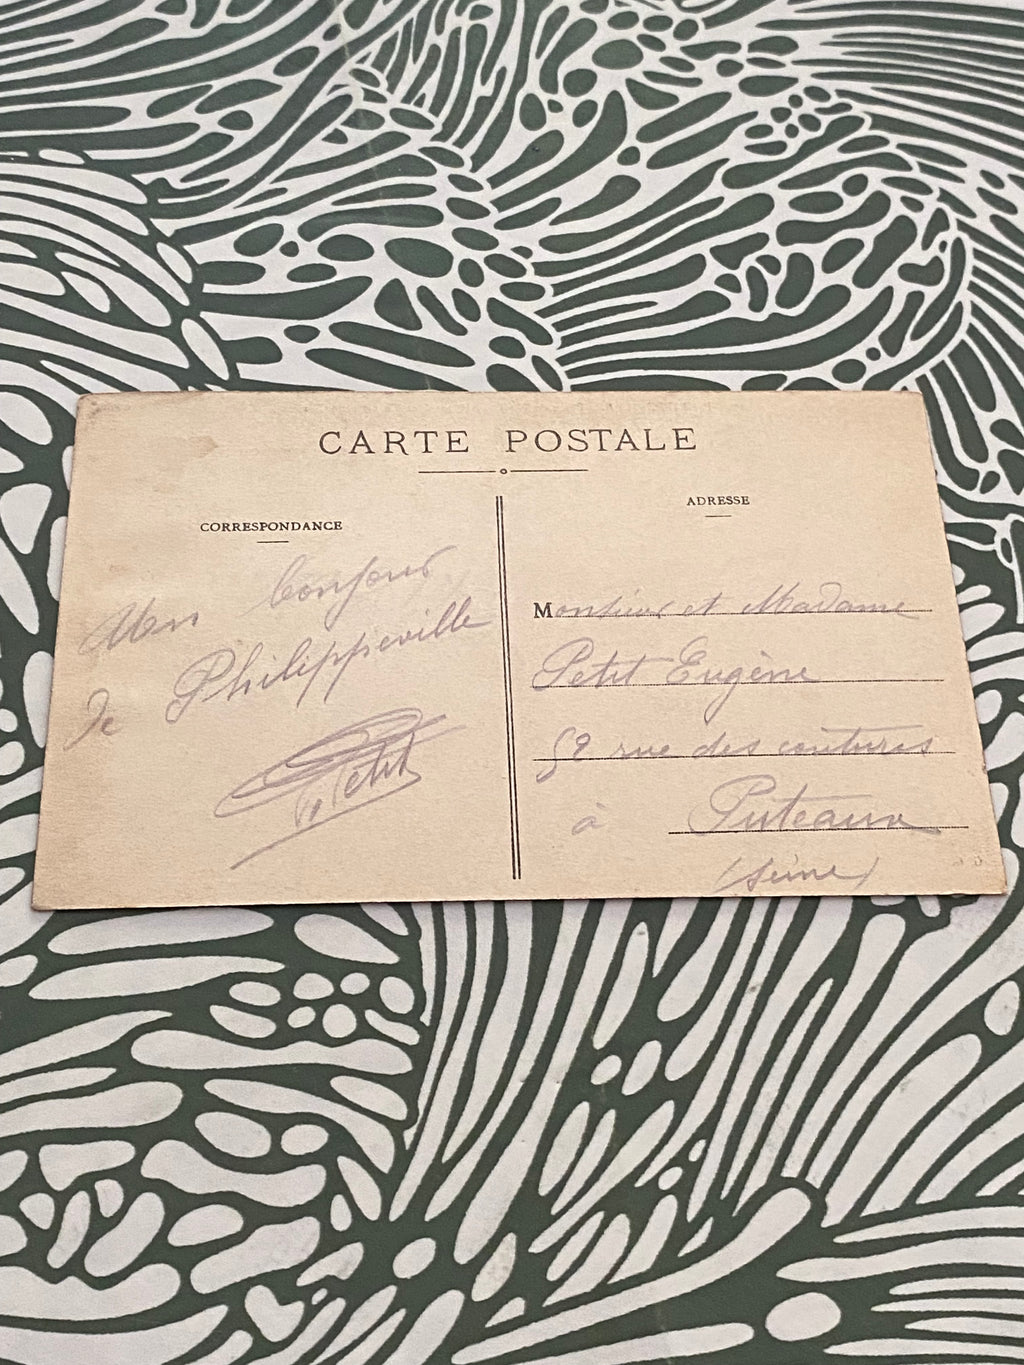 CARTE POSTALE
CORRESPONDANCE
Mon bonjour
de Philippeville
Petit
ADRESSE
Monsieur et Madame
Petit Eugène
59 rue des coutures
à Puteaux
(Seine)